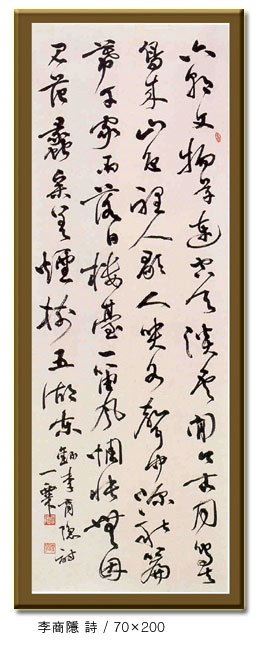 六朝文物草連空天淡雲閒今古同鳥去
鳥來山色裡人歌人哭水聲中深秋簾
幕千家雨落日樓臺一笛風惆悵無因
見范蠡參差煙樹五湖東 錄李商隱詩
李商隱 詩 / 70×200